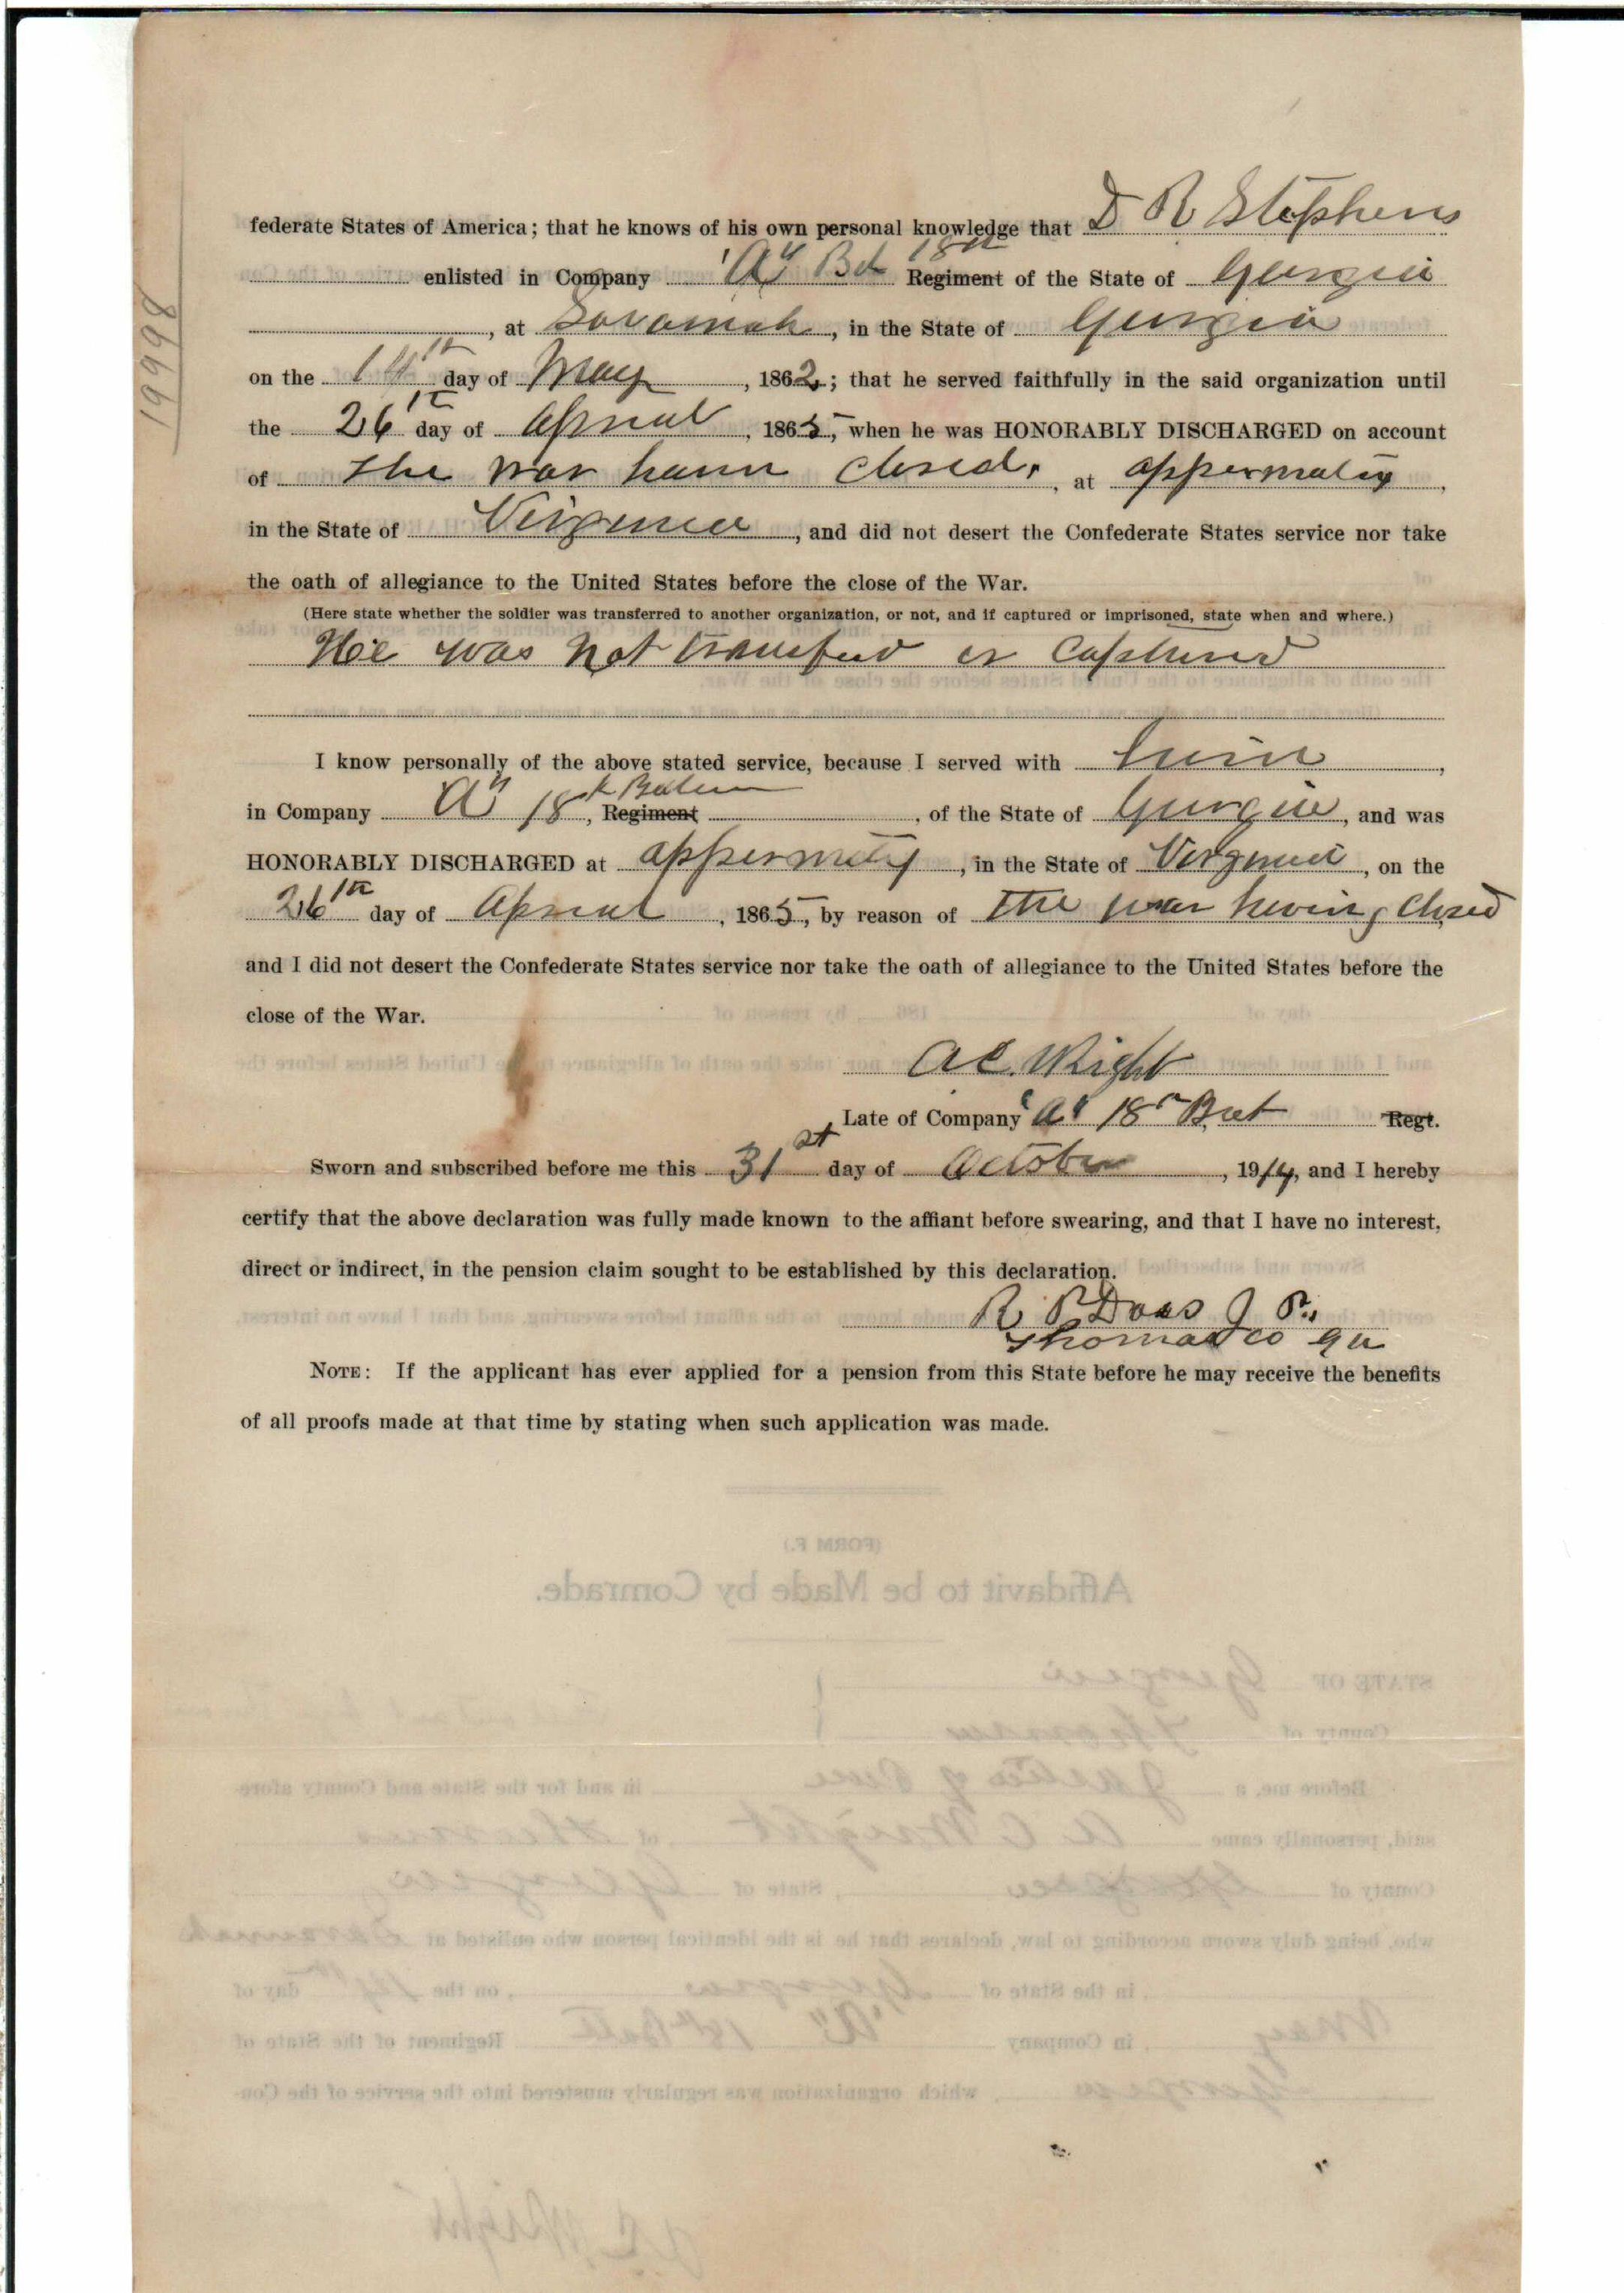 19998
federate States of America; that he knows of his own personal knowledge that D R Stephens
enlisted in Company "A" Bat 18th Regiment of the State of Georgia
, at Savannah, in the State of Georgia
on the 14th day of May, 1862; that he served faithfully in the said organization until
the 26th day of April, 1865, when he was HONORABLY DISCHARGED on account
of the war havin closed, at appermatix,
in the State of Virginia, and did not desert the Confederate States service nor take
the oath of allegiance to the United States before the close of the War.
(Here state whether the soldier was transferred to another organization, or not, and if captured or imprisoned, state when and where.)
He was not transferd or Captured
I know personally of the above stated service, because I served with him,
in Company A" 18th , Regiment of the State of Georgia, and was
HONORABLY DISCHARGED at appermatix, in the State of Virginia, on the
26th day of April, 1865, by reason of the war having Closed
and I did not desert the Confederate States service nor take the oath of allegiance to the United States before the
close of the War.
A C. Wright
Late of Company "A" 18th Bat Regt.
Sworn and subscribed before me this 31st day of October, 1914, and I hereby
certify that the above declaration was fully made known to the affiant before swearing, and that I have no interest,
direct or indirect, in the pension claim sought to be established by this declaration.
R. P. Doss J P.,
Thomas co Ga
NOTE: If the applicant has ever applied for a pension from this State before he may receive the benefits
of all proofs made at that time by stating when such application was made.